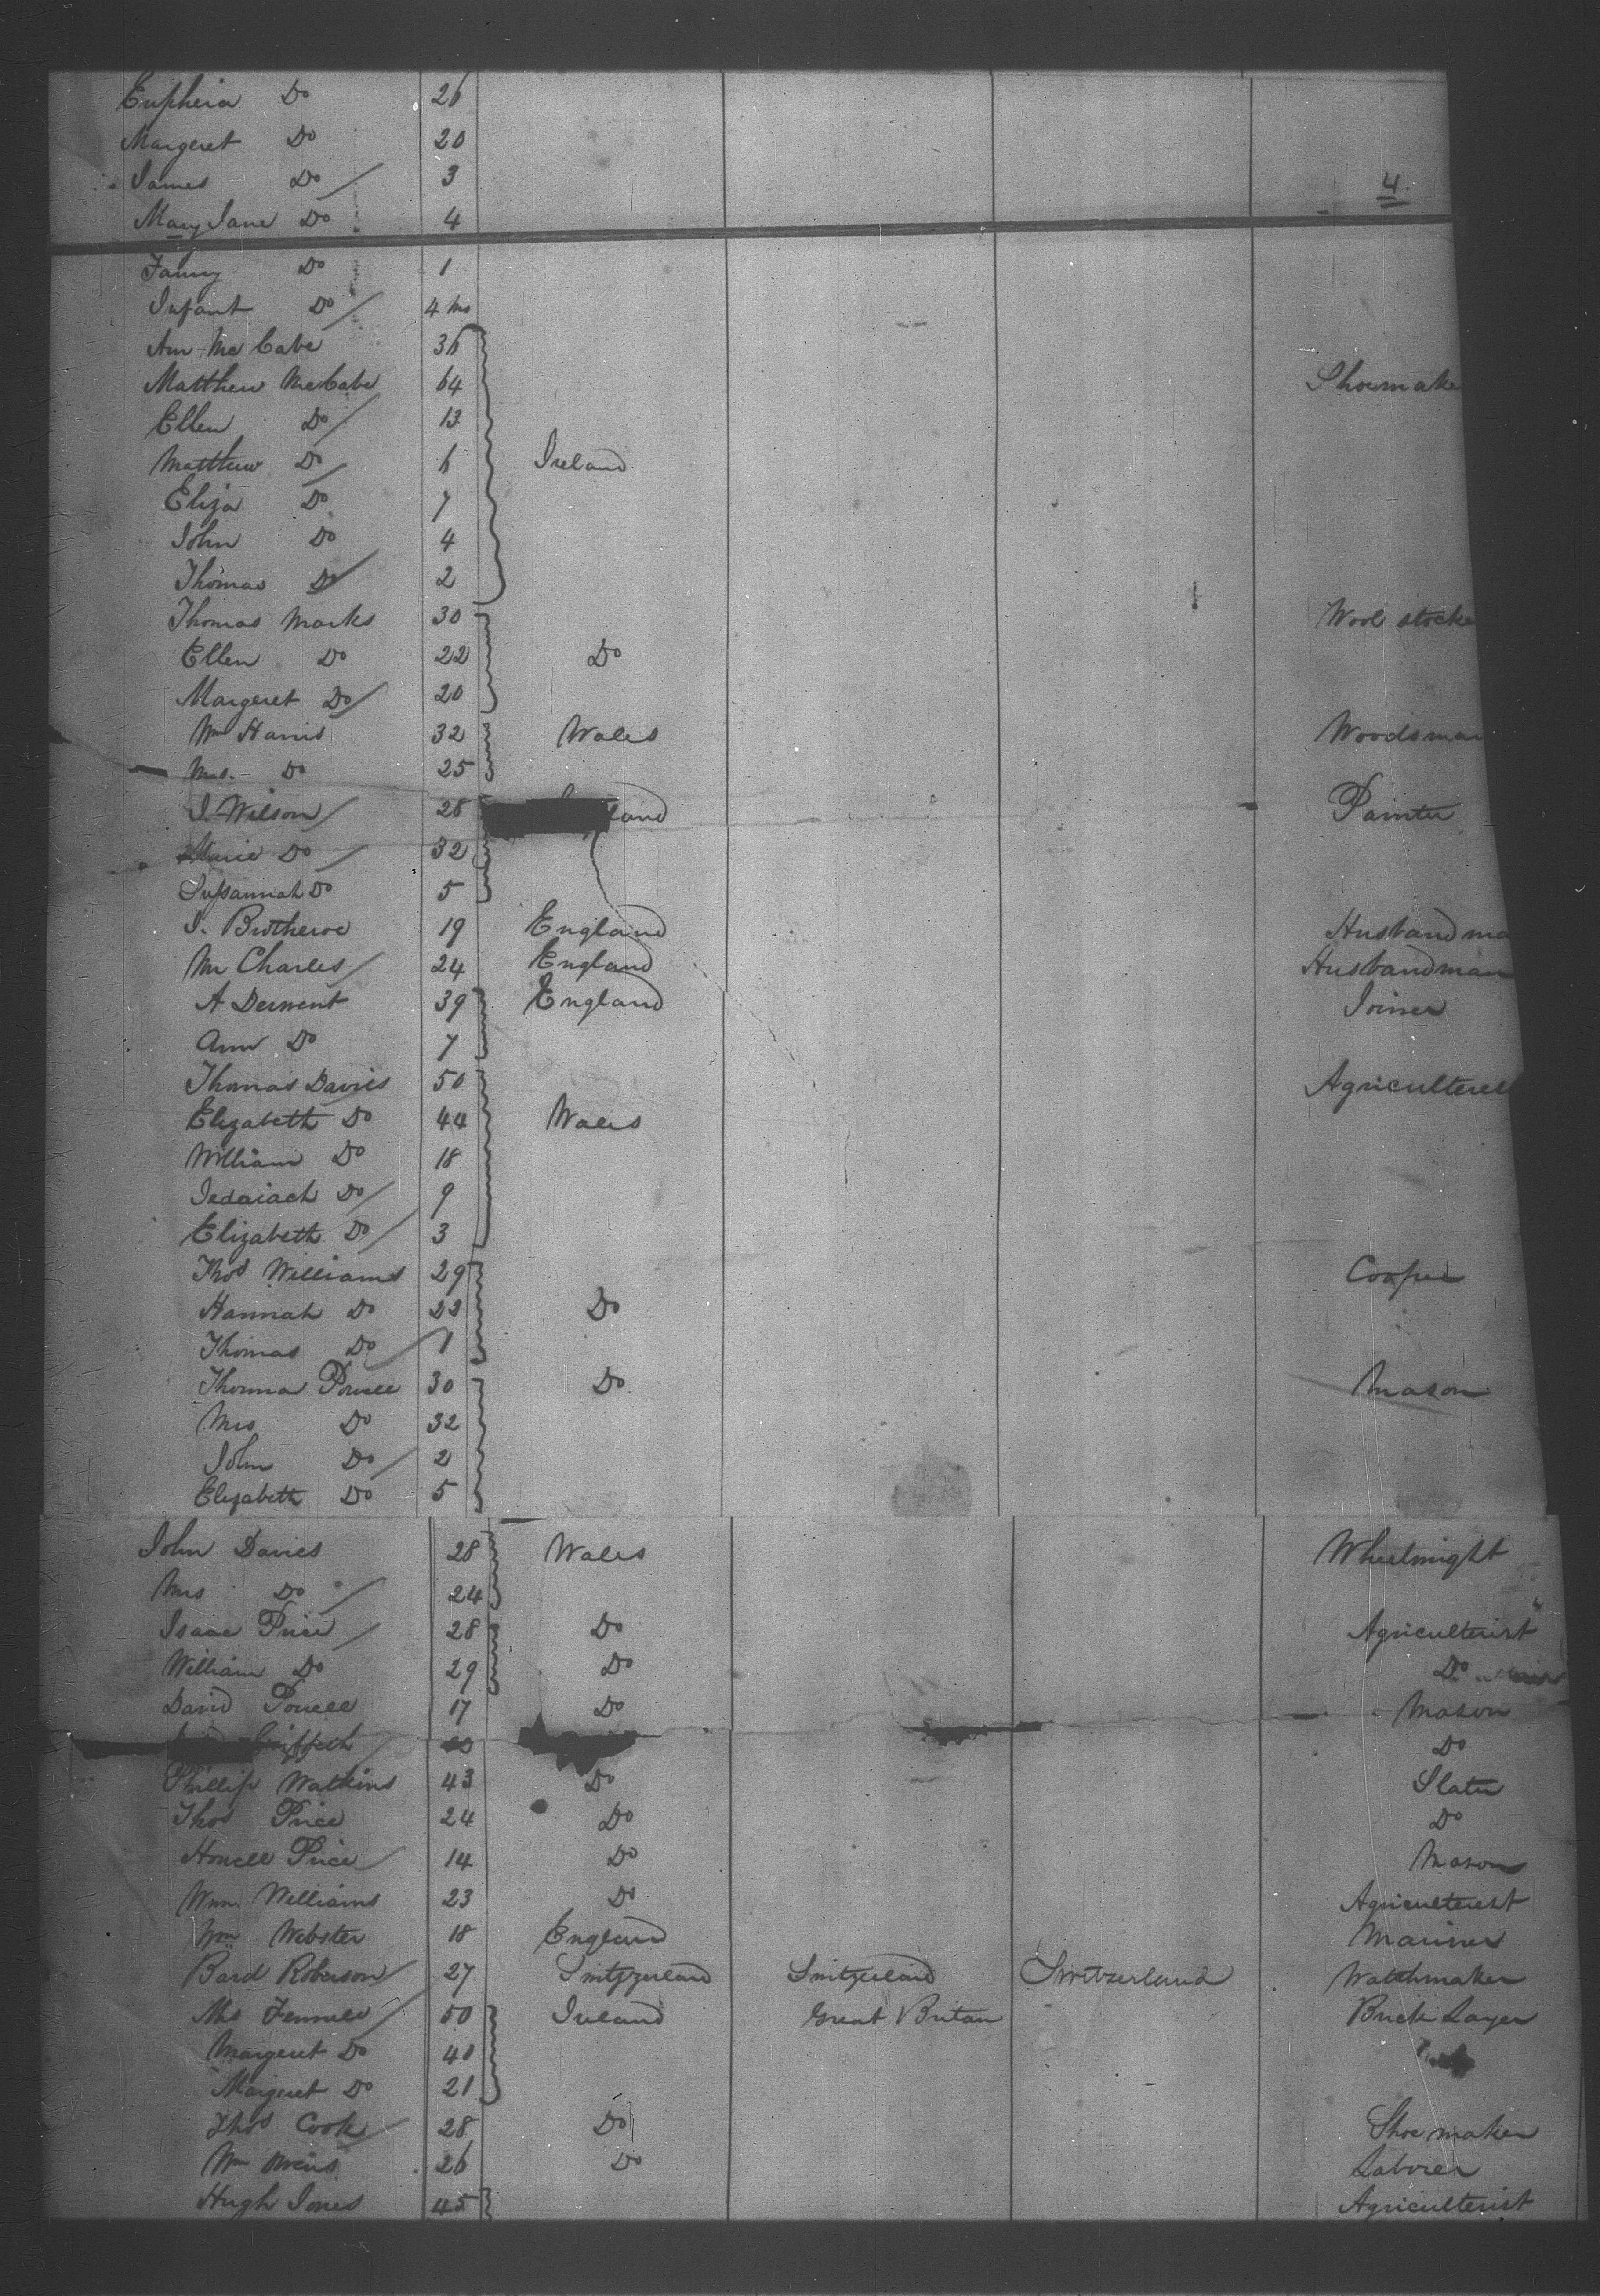 Eupheia Do 26
Margeret Do 20
James Do 3
4.
Mary Jane Do 4
Fanny Do 1
Infant Do 4 mo
Ann Mc Cabe 36
Matthew McCabe 64 Shoemake
Ellen Do 13
Matthew Do 6 Ireland
Eliza Do 7
John Do 4
Thomas Do 2
Thomas Marks 30 Wool stocke
Ellen Do 22 Do
Margeret Do 20
Wm Harris 32 Wales Woodsman
Mrs. Do 25
J. Wilson 28 land Painter
Marie Do 32
Sussannah Do 5
J. Brotheroe 19 England Husband ma
Wm Charles 24 England Husbandman
A Derment 39 England Joiner
Ann Do 7
Thomas Davies 50 Agricultere
Elizabeth Do 44 Wales
William Do 18
Jedaiach Do 9
Elizabeth Do 3
Thos Williams 29 Cooper
Hannah Do 22 Do
Thomas Do 1
Thomas Powell 30 Do Mason
Mrs Do 32
John Do 2
Elizabeth Do 5
John Davies 28 Wales Wheelwright
Mrs Do 24
Isaac Price 28 Do Agriculterist
William Do 29 Do Do
David Powell 17 Do Mason
Griffeth Do
Phillip Watkins 43 Do Slater
Thos Price 24 Do Do
Howell Price 14 Do Mason
Wm. Williams 23 Do Agriculterist
Wm Webster 18 England Mariner
Bard Roberson 27 Switzzerland Switzerland Switzerland Watchmaker
Fennell 50 Ireland Great Britan Brick Layer
Margeret Do 40
Margeret Do 21
Thos Cook 28 Do Shoe maker
Wm 26 Do Laborer
Hugh Jones 45 Agriculterist